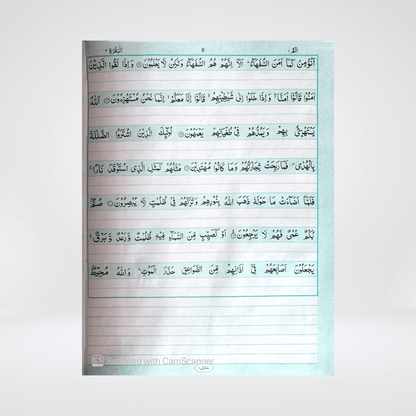 البقرة ٢ ٨ الٓمّٓ
اَنُؤْمِنُ كَمَاۤ اٰمَنَ السُّفَهَآءُ ؕ اَلَاۤ اِنَّهُمْ هُمُ السُّفَهَآءُ وَلٰكِنْ لَّا يَعْلَمُوْنَ وَاِذَا لَقُوا الَّذِيْنَ
اٰمَنُوْا قَالُوْۤا اٰمَنَّا ۖ وَاِذَا خَلَوْا اِلٰى شَيٰطِيْنِهِمْ ۙ قَالُوْۤا اِنَّا مَعَكُمْ ۙ اِنَّمَا نَحْنُ مُسْتَهْزِءُوْنَ اَللّٰهُ
يَسْتَهْزِئُ بِهِمْ وَيَمُدُّهُمْ فِيْ طُغْيَانِهِمْ يَعْمَهُوْنَ اُولٰٓئِكَ الَّذِيْنَ اشْتَرَوُا الضَّلٰلَةَ
بِالْهُدٰى ۪ فَمَا رَبِحَتْ تِّجَارَتُهُمْ وَمَا كَانُوْا مُهْتَدِيْنَ مَثَلُهُمْ كَمَثَلِ الَّذِى اسْتَوْقَدَ نَارًا ۚ
فَلَمَّاۤ اَضَآءَتْ مَا حَوْلَهٗ ذَهَبَ اللّٰهُ بِنُوْرِهِمْ وَتَرَكَهُمْ فِيْ ظُلُمٰتٍ لَّا يُبْصِرُوْنَ صُمٌّۢ
بُكْمٌ عُمْيٌ فَهُمْ لَا يَرْجِعُوْنَ اَوْ كَصَيِّبٍ مِّنَ السَّمَآءِ فِيْهِ ظُلُمٰتٌ وَّرَعْدٌ وَّبَرْقٌ ۚ
يَجْعَلُوْنَ اَصَابِعَهُمْ فِيْۤ اٰذَانِهِمْ مِّنَ الصَّوَاعِقِ حَذَرَ الْمَوْتِ ؕ وَاللّٰهُ مُحِيْطٌۢ
CS Scanned with CamScanner